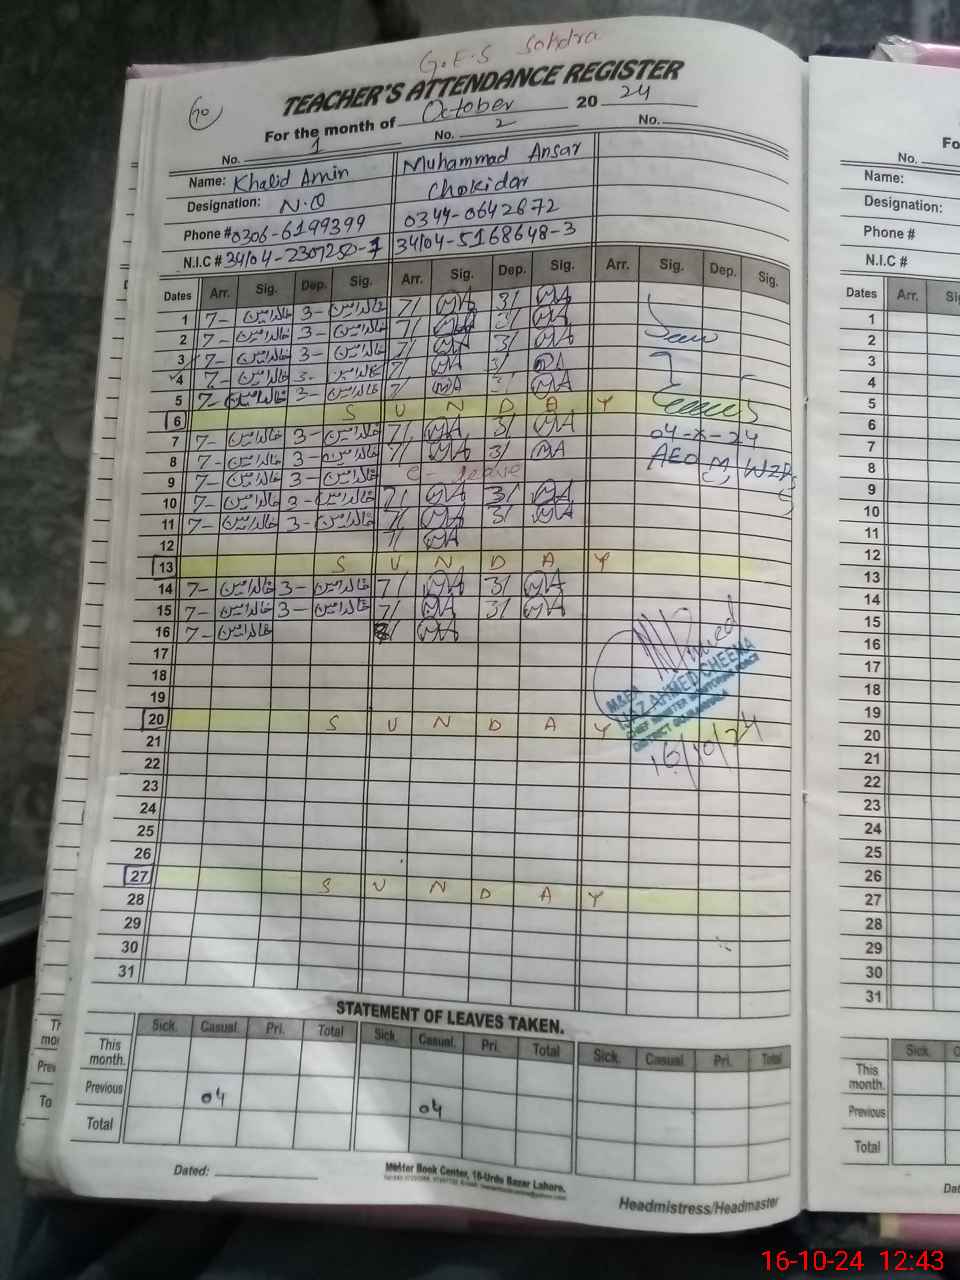 G.E.S Sohdra
TEACHER'S ATTENDANCE REGISTER
For the month of October 20 24
70
No. 1 No. 2 No.
Name: Khalid Amin Muhammad Ansar
Designation: N.Q Chokidar
Phone # 0306-6199399 0344-0642672
N.I.C # 34104-2307250-1 34104-5168648-3
Dates Arr. Sig. Dep. Sig. Arr. Sig. Dep. Sig. Arr. Sig. Dep. Sig.
1 7- خالد امین 3- خالد امین 7/ MA 3/ MA
2 7- خالد امین 3- خالد امین 7/ MA 3/ MA
3 7- خالد امین 3- خالد امین 7/ MA 3/ MA
4 7- خالد امین 3- خالد امین 7/ MA 3/ MA
5 7- خالد امین 3- خالد امین 7/ MA 3/ MA
6 S U N D A Y
7 7- خالد امین 3- خالد امین 7/ MA 3/ MA
8 7- خالد امین 3- خالد امین 7/ MA 3/ MA
9 7- خالد امین 3- خالد امین c - leave
10 7- خالد امین 3- خالد امین 7/ MA 3/ MA
11 7- خالد امین 3- خالد امین 7/ MA 3/ MA
12 7/ MA
13 S U N D A Y
14 7- خالد امین 3- خالد امین 7/ MA 3/ MA
15 7- خالد امین 3- خالد امین 7/ MA 3/ MA
16 7- خالد امین MA
17
18
19
20 S U N D A Y
21
22
23
24
25
26
27 S U N D A Y
28
29
30
31
04-X-24
AEO M WZD
M&EA
AHMED CHEEMA
CHIEF MINISTER MONITORING FORCE
DISTRICT GUJRANWALA
16/10/24
STATEMENT OF LEAVES TAKEN.
Sick. Casual. Pri. Total Sick. Casual. Pri. Total Sick. Casual Pri. Total
This month.
Previous 04 04
Total
Dated:
Master Book Center, 16-Urdu Bazar Lahore.
Headmistress/Headmaster
Fo
No.
Name:
Designation:
Phone #
N.I.C #
Dates Arr.
1
2
3
4
5
6
7
8
9
10
11
12
13
14
15
16
17
18
19
20
21
22
23
24
25
26
27
28
29
30
31
Sick.
This month.
Previous
Total
16-10-24 12:43